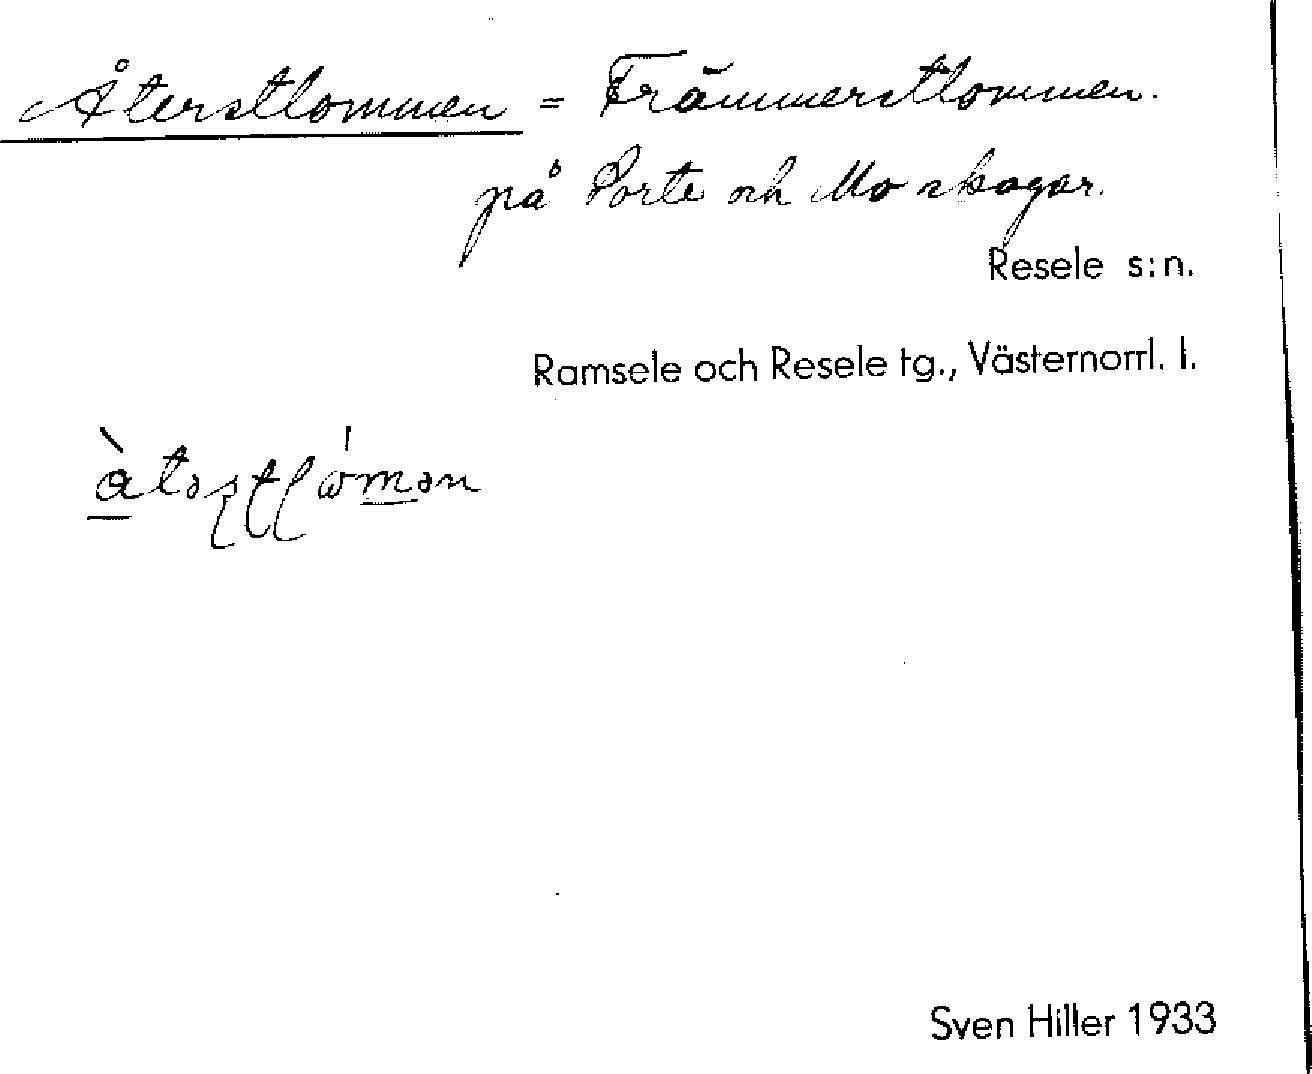 Återstlommen = Främmerstlommen.
på Porte och Mo skogar.
Resele s:n.
Ramsele och Resele tg., Västernorrl. l.
Sven Hiller 1933